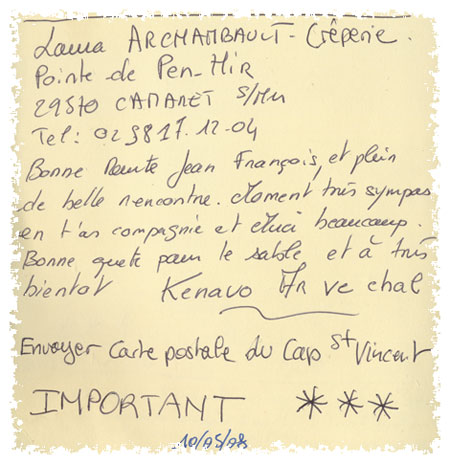 Laura ARCHAMBAULT - Crêperie.
Pointe de Pen-Hir
29570 CAMARET S/Mer
Tel: 02 98 17.12.04
Bonne Route Jean François, et plein
de belle rencontre. Moment très sympas
en t'as compagnie et Merci beaucoup.
Bonne quete pour le sable et à très
bientot Kenavo Ar ve chal
Envoyer Carte postale du Cap St Vincent
IMPORTANT ***
10/05/98